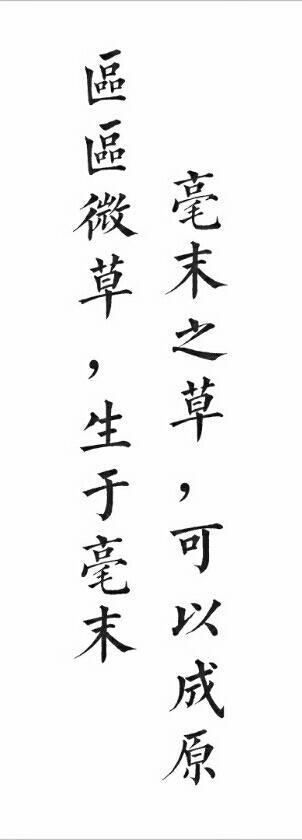 區區微草，生于毫末
毫末之草，可以成原